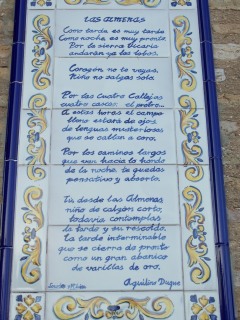 LAS ALMENAS
Como tarda es muy tarde
Como noche es muy pronto
Por la sierra bicaria
andarán ya los lobos.
Corazón, no te vayas,
Niño no salgas solo
Por las cuatro Callejas
cuatro cascos: el potro...
A estas horas el campo
lleno estará de ojos
de lenguas misteriosas
que se callan a coro.
Por los caminos largos
que van hacia lo hondo
de la noche te quedas
pensativo y absorto.
Tú desde las Almenas
niño de calzón corto,
todavía contemplas
la tarde y su rescoldo,
La tarde interminable
que se cierra de pronto
como un gran abanico
de varillas de oro.
Aquilino Duque